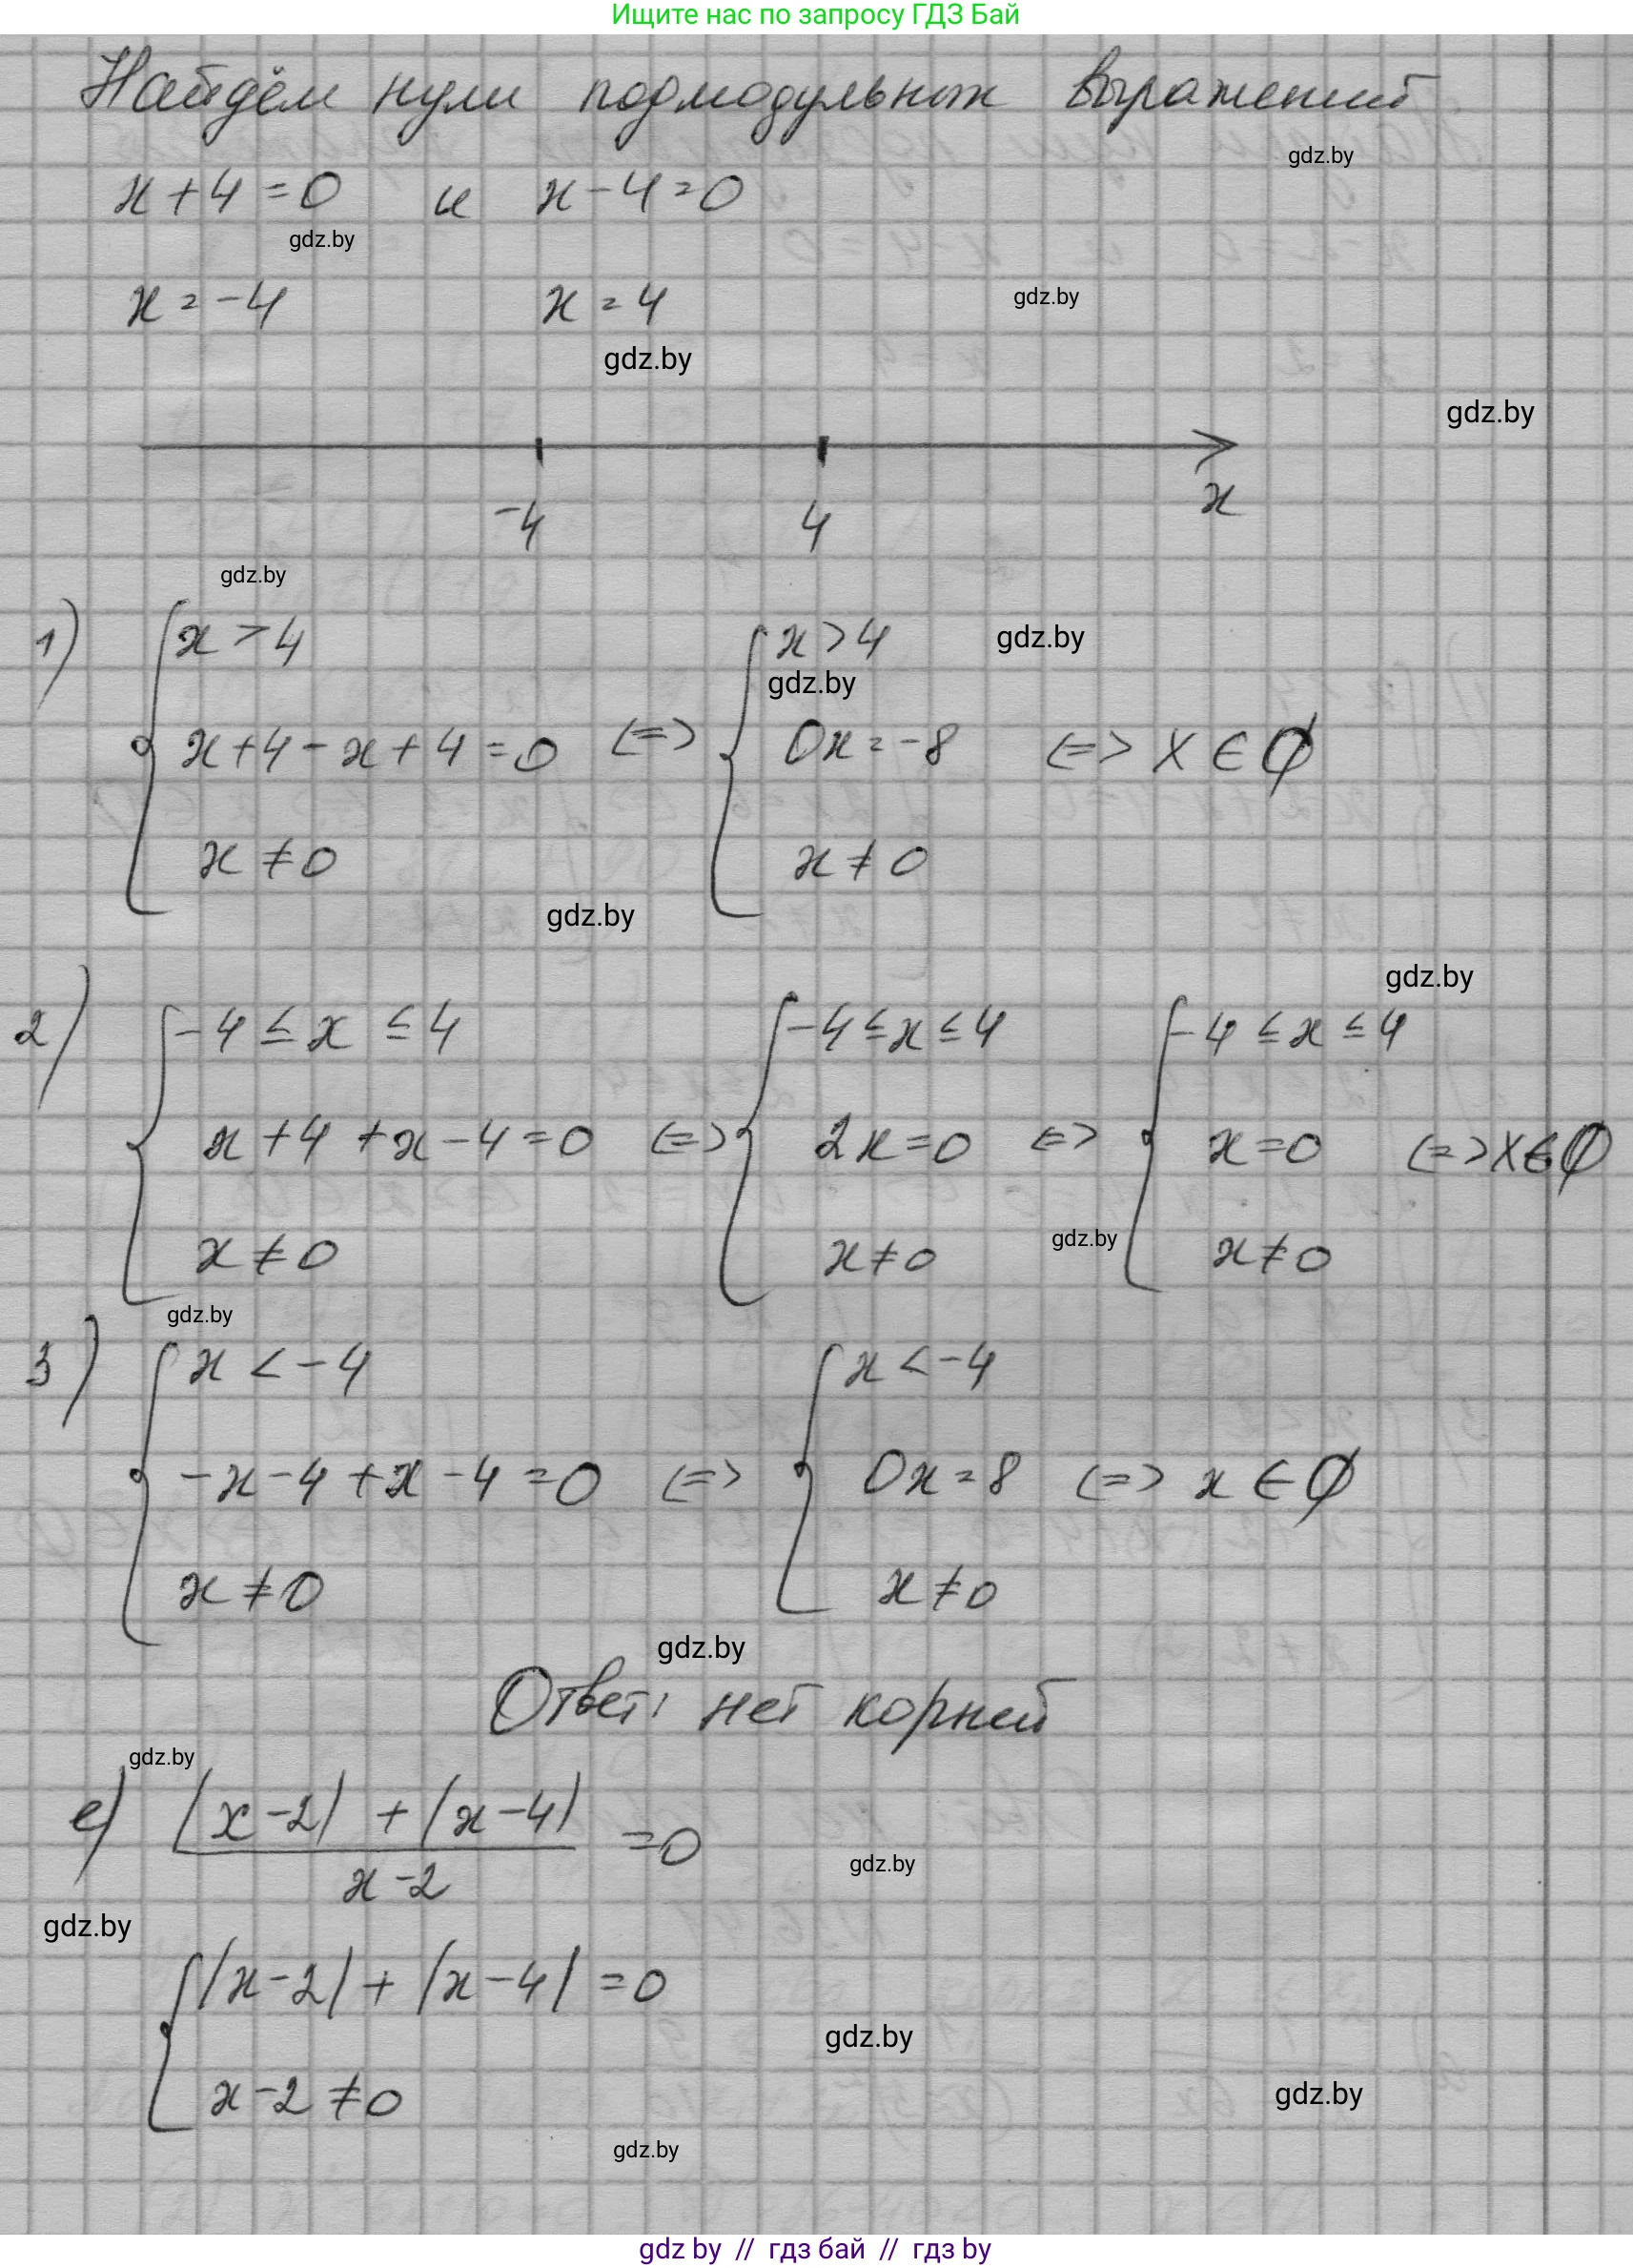 Ищите нас по запросу ГДЗ Бай
Найдём нули подмодульных выражений
gdz.by
x + 4 = 0 и x - 4 = 0
gdz.by
x = -4 x = 4
gdz.by
gdz.by
gdz.by
-4 4 x
gdz.by
1) { x > 4 { x > 4
gdz.by
gdz.by
x + 4 - x + 4 = 0 <=> 0x = -8 <=> x ∈ ∅
x ≠ 0 x ≠ 0
gdz.by
gdz.by
2) { -4 ≤ x ≤ 4 { -4 ≤ x ≤ 4 { -4 ≤ x ≤ 4
x + 4 + x - 4 = 0 <=> 2x = 0 <=> x = 0 <=> x ∈ ∅
gdz.by
x ≠ 0 x ≠ 0 x ≠ 0
gdz.by
3) { x < -4 { x < -4
-x - 4 + x - 4 = 0 <=> 0x = 8 <=> x ∈ ∅
x ≠ 0 x ≠ 0
gdz.by
Ответ: нет корней
gdz.by
е) |x - 2| + |x - 4|
x - 2 = 0
gdz.by
gdz.by
{ |x - 2| + |x - 4| = 0
gdz.by
x - 2 ≠ 0
gdz.by
gdz.by
gdz by // гдз бай // гдз by